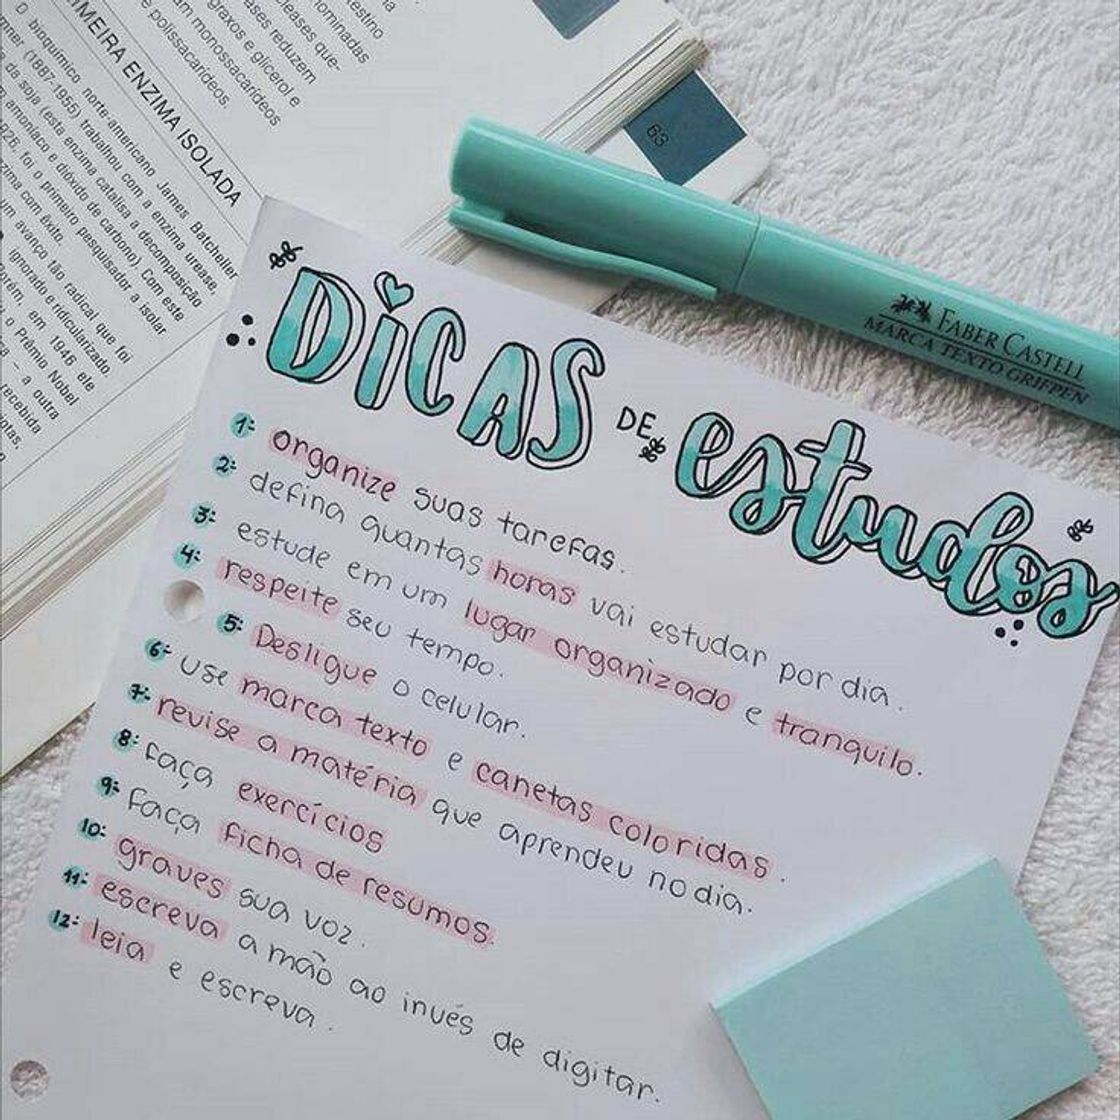 DICAS DE estudos
1: organize suas tarefas.
2: defina quantas horas vai estudar por dia.
3: estude em um lugar organizado e tranquilo.
4: respeite seu tempo.
5: Desligue o celular.
6: use marca texto e canetas coloridas.
7: revise a matéria que aprendeu no dia.
8: faça exercícios
9: faça ficha de resumos.
10: graves sua voz.
11: escreva a mão ao invés de digitar.
12: leia e escreva.
FABER CASTELL
MARCA TEXTO GRIFPEN
63
estino
nominadas
leases que
ases reduzem
graxos e glicerol e
am monossacarídeos
e polissacarídeos
IMEIRA ENZIMA ISOLADA
O bioquímico norte-americano James Batcheller
ner (1887-1955) trabalhou com a enzima urease,
da soja (esta enzima catalisa a decomposição
amoníaco e dióxido de carbono). Com este
926, foi o primeiro pesquisador a isolar
zima com êxito.
um avanço tão radical que foi
ignorado e ridicularizado.
orém, em 1946 ele
o Prêmio Nobel
a – a outra
recebida
otas.